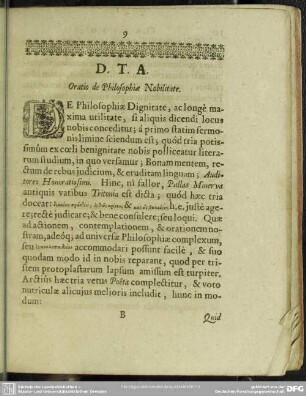 9
D. T. A.
Oratio de Philosophiæ Nobilitate.
DE Philosophiæ Dignitate, ac longè ma-
xima utilitate, si aliquis dicendi locus
nobis conceditur; á primo statim sermo-
nis limine sciendum est; quód tria potis-
simùm ex cœli benignitate nobis polliceatur litera-
rum studium, in quo versamur; Bonam mentem, re-
ctum de rebus judicium, & eruditam linguam; Audi-
tores Honoratissimi. Hinc, ni fallor, Pallas Minerva
antiquis vatibus Tritonia est dicta; quód hæc tria
doceat: h.e. justè age-
re; rectè judicare; & bene consulere; seu loqui. Quæ
ad actionem, contemplationem, & orationem no-
stram, adeóq; ad universæ Philosophiæ complexum,
seu accommodari possunt facilè, & suo
quodam modo id in nobis reparant, quod per tri-
stem protoplastarum lapsum amissum est turpiter.
Arctiùs hæc tria vetus Poëta complectitur, & voto
nutriculæ alicujus melioris includit, hunc in mo-
dum:
B Quid